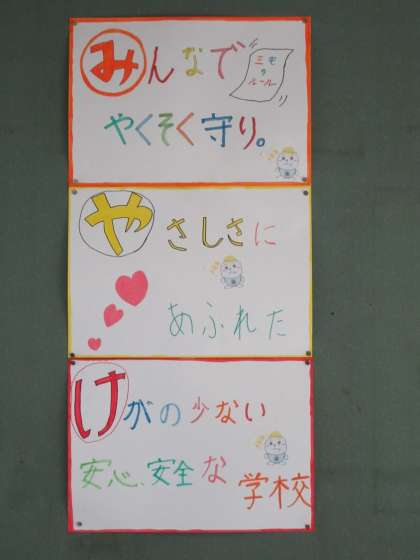 みんなで
三宅
の
ルール
やくそく守り。
やさしさに
あふれた
けがの少ない
安心、安全な
学校